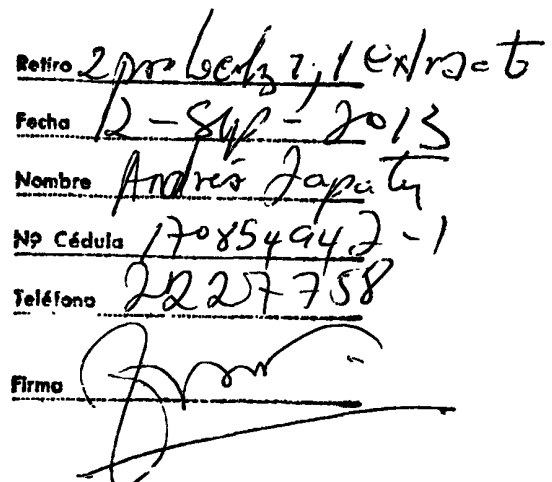 Retiro 2 protocoliz, 1 extracto
Fecha 12-Sep-2013
Nombre Andrés Zapata
Nº Cédula 170854947-1
Teléfono 2227758
Firma